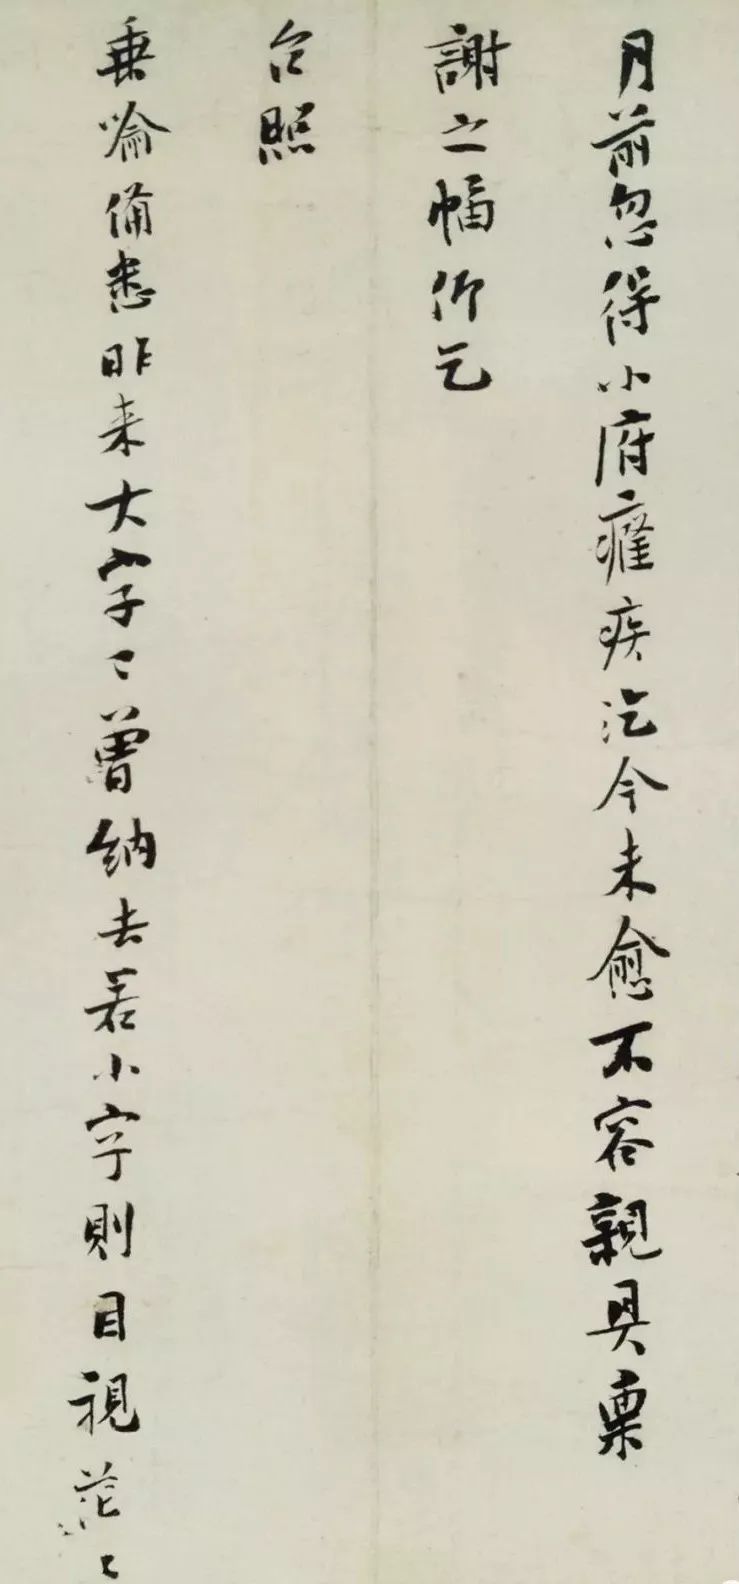 月前忽得小府癃疾汔今未愈不容親具稟
謝之幅仰乞
台照
垂喻備悉昨来大字已曾納去若小字則目視茫〻